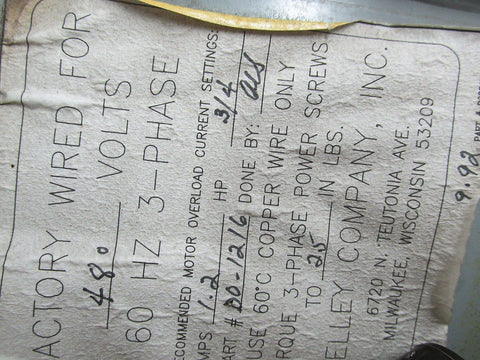 ACTORY WIRED FOR
480 VOLTS
60 HZ 3-PHASE
ECOMMENDED MOTOR OVERLOAD CURRENT SETTINGS:
MPS 1.2 HP 3/4
ART # DO-1216 DONE BY:
USE 60°C COPPER WIRE ONLY
RQUE 3-PHASE POWER SCREWS
TO 25 IN LBS.
ELLEY COMPANY, INC.
6720 N. TEUTONIA AVE.
MILWAUKEE, WISCONSIN 53209
9.92 PART #